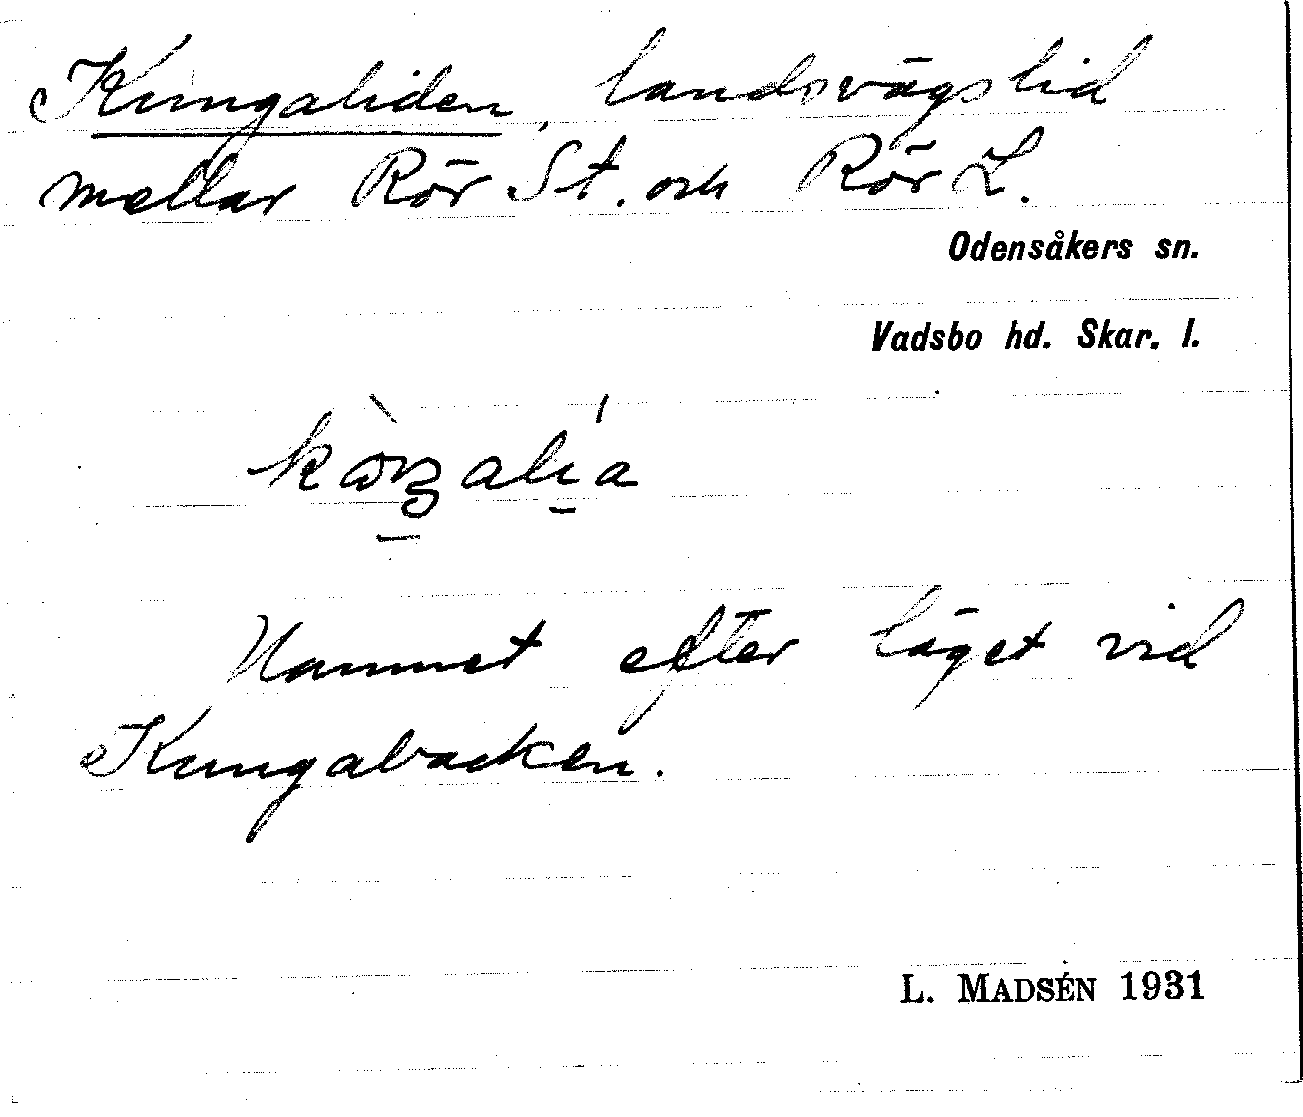 Kungaliden, landsvägslid
mellan Rör St. och Rör L.
Odensåkers sn.
Vadsbo hd. Skar. l.
Namnet efter läget vid
Kungabacken.
L. MADSÉN 1931